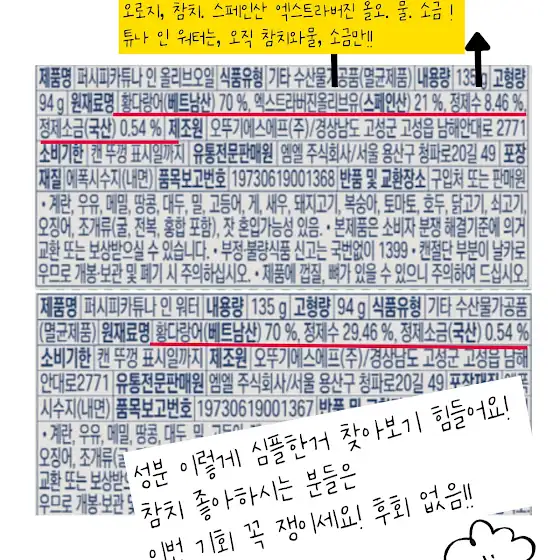 오로지, 참치. 스페인산 엑스트라버진 올오. 물. 소금 !
튜나 인 워터는, 오직 참치와물, 소금만!!
제품명 퍼시피카튜나 인 올리브오일 식품유형 기타 수산물가공품(멸균제품) 내용량 135g 고형량
94 g 원재료명 황다랑어(베트남산) 70 %, 엑스트라버진올리브유(스페인산) 21 %, 정제수 8.46 %,
정제소금(국산) 0.54 % 제조원 오뚜기에스에프(주)/경상남도 고성군 고성읍 남해안대로 2771
소비기한 캔 뚜껑 표시일까지 유통전문판매원 엠엘 주식회사/서울 용산구 청파로20길 49 포장
재질 에폭시수지(내면) 품목보고번호 19730619001368 반품 및 교환장소 구입처 또는 판매원
• 계란, 우유, 메밀, 땅콩, 대두, 밀, 고등어, 게, 새우, 돼지고기, 복숭아, 토마토, 호두, 닭고기, 쇠고기,
오징어, 조개류(굴, 전복, 홍합 포함), 잣 혼입가능성 있음. • 본제품은 소비자 분쟁 해결기준에 의거
교환 또는 보상받으실 수 있습니다. • 부정·불량식품 신고는 국번없이 1399 • 캔절단 부분이 날카로
우므로 개봉·보관 및 폐기 시 주의하십시오. • 제품에 껍질, 뼈가 있을 수 있으니 주의하여 드십시오.
제품명 퍼시피카튜나 인 워터 내용량 135 g 고형량 94 g 식품유형 기타 수산물가공품
(멸균제품) 원재료명 황다랑어(베트남산) 70 %, 정제수 29.46 %, 정제소금(국산) 0.54 %
소비기한 캔 뚜껑 표시일까지 제조원 오뚜기에스에프(주)/경상남도 고성군 고성읍 남해
안대로2771 유통전문판매원 엠엘 주식회사/서울 용산구 청파로20길 49 포장재질
시수지(내면) 품목보고번호 19730619001367 반품 및
• 계란, 우유, 메밀, 땅콩, 대두, 밀, 고
오징어, 조개류(굴
교환 또는 보상
우므로 개봉·보관 및
성분 이렇게 심플한거 찾아보기 힘들어요!
참치 좋아하시는 분들은
이번 기회 꼭 쟁이세요! 후회 없음!!